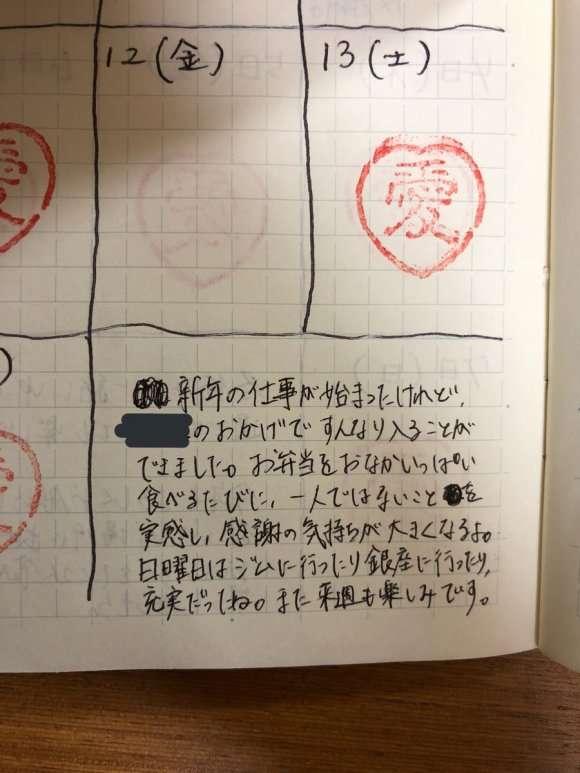 12(金)
13(土)
愛
愛
愛
新年の仕事が始まったけれど、
のおかげですんなり入ることが
できました。お弁当をおなかいっぱい
食べるたびに、一人ではないことを
実感し、感謝の気持ちが大きくなるよ。
日曜日はジムに行ったり銀座に行ったり、
充実だったね。また来週も楽しみです。